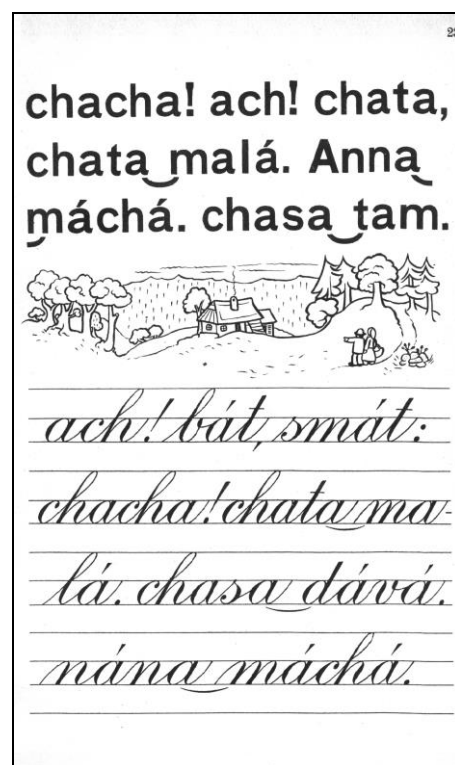 chacha! ach! chata,
chata malá. Anna
máchá. chasa tam.
ach! bát, smát:
chacha! chata ma-
lá. chasa dává.
nána máchá.